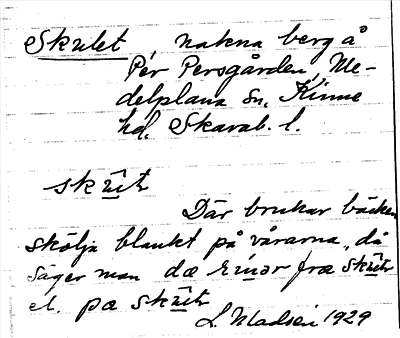 Skulet, nakna berg å
Per Persgården, Me-
delplana Sn, Kinne
hd. Skarab. l.
skūt
Där brukar bäcken
skölja blankt på vårarna, då
säger man dæ rinor fræ skūt
el. pæ skūt
L. Madsén 1929